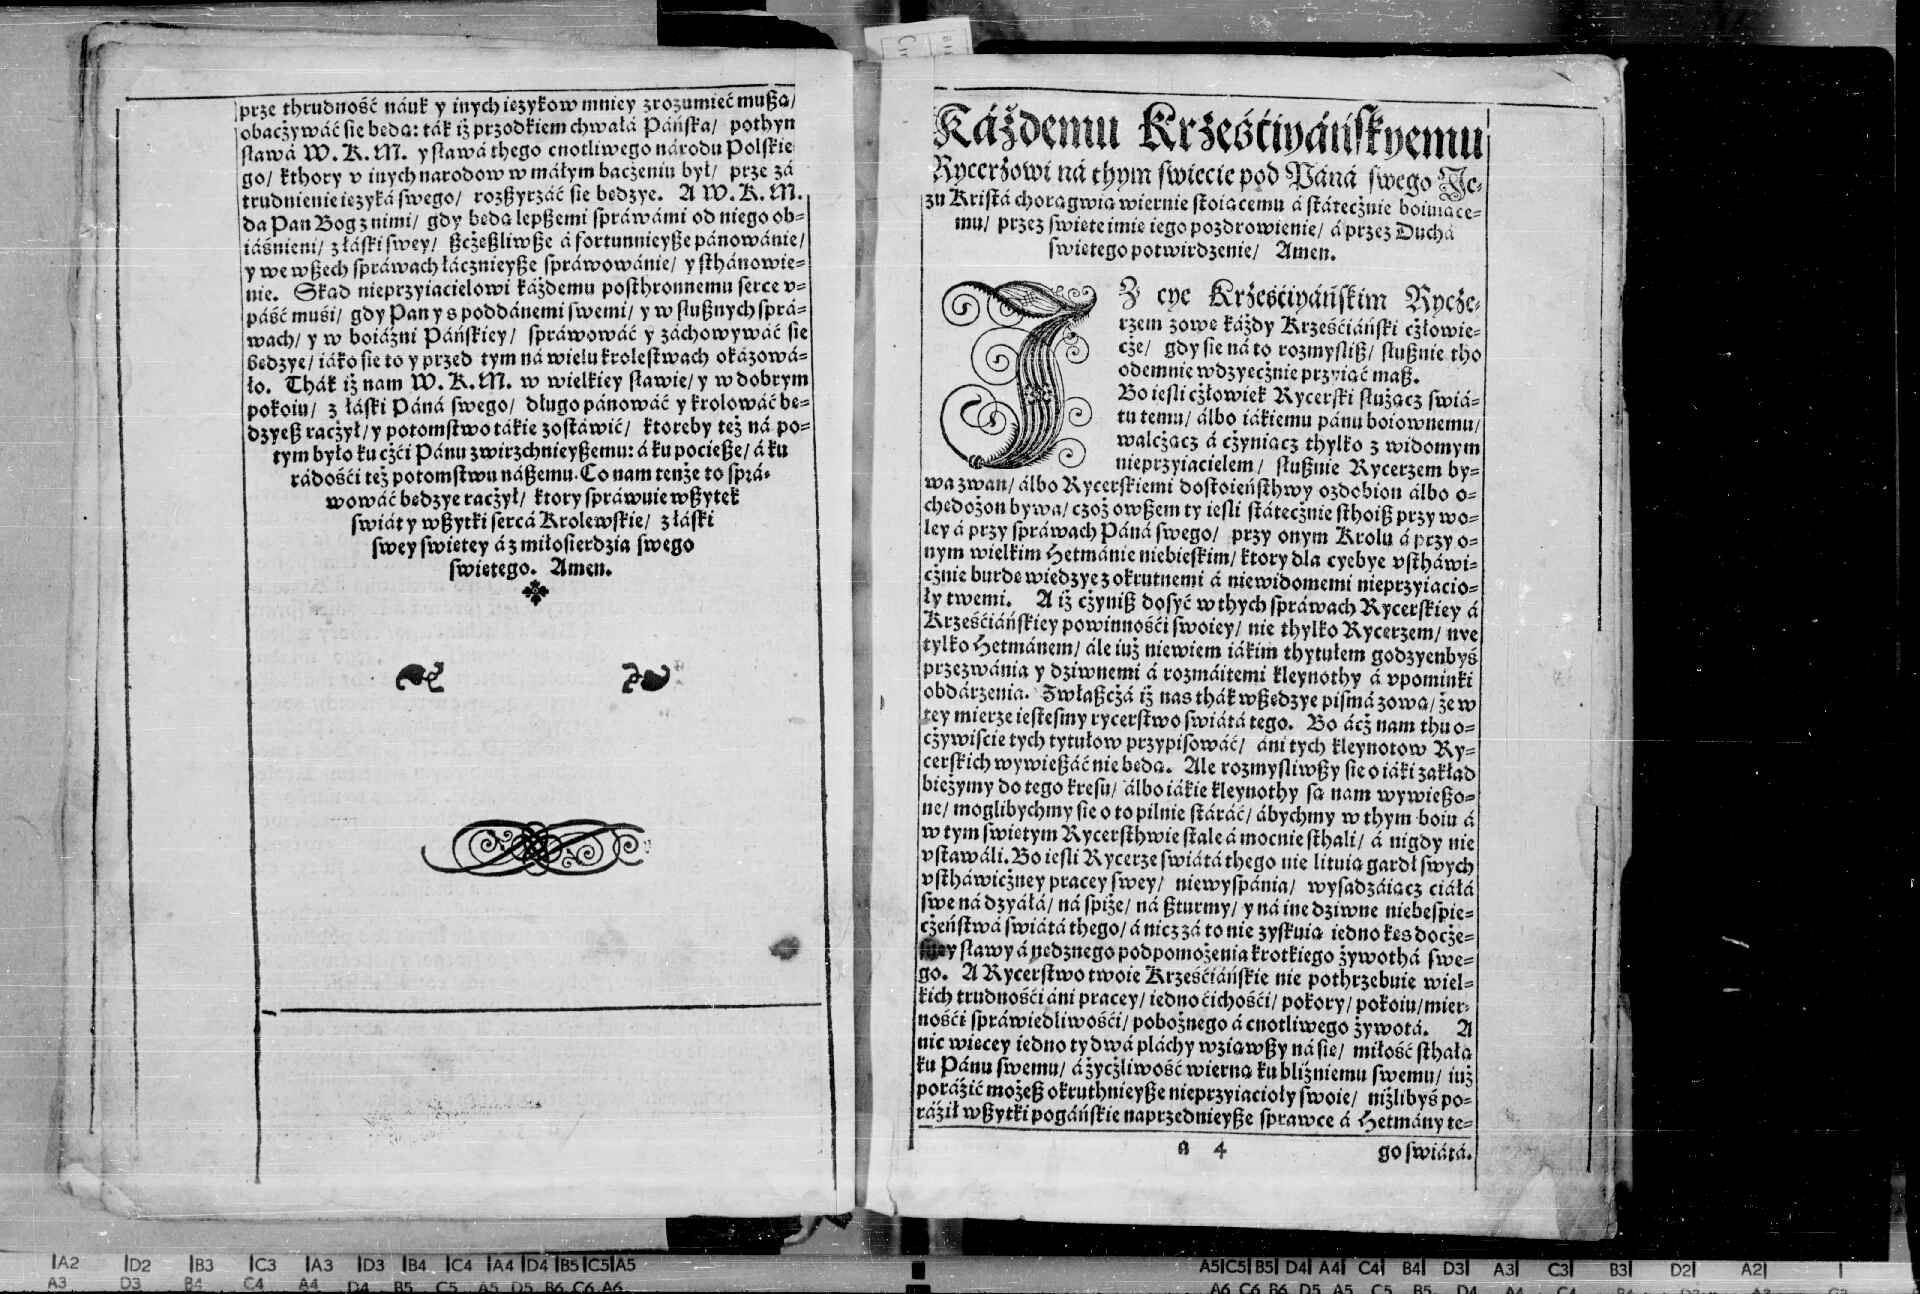 prze thrudność náuk y inych ięzykow mniey zrozumieć muszą/
obaczżywáć się będą: ták iż przodkiem chwałá Páńska/ pothym
sławá W. K. M. y sławá thego cnotliwego narodu Polskie
go/ kthory v inych narodow w máłym baczżeniu był/ prze zá
trudnienie ięzyká swego/ rozszyrzáć się będzye. A W. K. M.
da Pan Bog z nimi/ gdy będą lepszemi spráwámi od niego ob-
iáśnieni/ z łáski swey/ szczżęśliwsze á fortunnieysze pánowánie/
y we wszech spráwach łácznieysze spráwowánie/ y sthánowie-
nie. Skąd nieprzyiacielowi káżdemu posthronnemu serce v-
páść muśi/ gdy Pan y s poddánemi swemi/ y w słusznych sprá-
wach/ y w boiáźni Páńskiey/ spráwowáć y záchowywáć się
będzye/ iáko się to y przed tym ná wielu krolestwach okázowá-
ło. Thák iż nam W. K. M. w wielkiey sławie/ y w dobrym
pokoiu/ z łáski Páná swego/ długo pánowáć y krolowáć bę-
dzyesz raczżył/ y potomstwo tákie zostáwić/ ktoreby też ná po-
tym było ku cżći Pánu zwirzchnieyszemu: á ku pociesze/ á ku
rádośći też potomstwu nászemu. Co nam tenże to sprá-
wowáć będzye raczżył/ ktory spráwuie wszytek
świát y wszytki sercá Krolewskie/ z łáski
swey świętey á z miłosierdzia swego
świętego. Amen.
Káżdemu Krżeśćiyáńskyemu
Rycerżowi ná thym swiecie pod Páná swego Je-
zu Kristá chorągwią wiernie stoiącemu á státecżnie boiuiące-
mu/ przez swięte imię iego pozdrowienie/ á przez Duchá
swiętego potwirdzenie/ Amen.
JZ cyę Krżeśćiyáńskim Rycże-
rzem zowę káżdy Krześćiáński cżłowie-
cże/ gdy się ná to rozmyślisz/ słusznie tho
odemnie wdzyęcżnie przyiąć masz.
Bo iesli cżłowiek Rycerski służącz swiá-
tu temu/ álbo iákiemu pánu boiownemu/
walcżącz á cżyniącz thylko z widomym
nieprzyiacielem/ słusznie Rycerzem by-
wa zwan/ álbo Rycerskiemi dostoieństhwy ozdobion álbo o-
chędożon bywa/ czoż owszem ty iesli státecżnie sthoisz przy wo-
ley á przy spráwach Páná swego/ przy onym Krolu á przy o-
nym wielkim Hetmánie niebieskim/ ktory dla cyebye vstháwi-
cżnie burdę wiedzye z okrutnemi á niewidomemi nieprzyiacio-
ły twemi. A iż cżynisz dosyć w thych spráwach Rycerskiey á
Krześćiáńskiey powinnośći swoiey/ nie thylko Rycerzem/ nye
tylko Hetmánem/ ále iuż niewiem iákim thytułem godzyenbyś
przezwánia y dziwnemi á rozmáitemi kleynothy á vpominki
obdárzenia. Zwłaszcżá iż nas thák wszędzye pismá zową/ że w
tey mierze iestesmy rycerstwo swiátá tego. Bo ácż nam thu o-
cżywiscie tych tytułow przypisowáć/ áni tych kleynotow Ry-
cerskich wywieszáć nie będą. Ale rozmysliwszy się o iáki zakład
bieżymy do tego kresu/ álbo iákie kleynothy są nam wywieszo-
ne/ moglibychmy się o to pilnie stáráć/ ábychmy w thym boiu á
w tym swiętym Rycersthwie stale á mocnie sthali/ á nigdy nie
vstawáli. Bo iesli Rycerze swiátá thego nie lituią gardł swych
vstháwicżney pracey swey/ niewyspánia/ wysadzáiącz ciáłá
swe ná dzyáłá/ ná spiże/ ná szturmy/ y ná ine dziwne niebespie-
cżeństwá swiátá thego/ á nicz zá to nie zyskuią iedno kęs docże-
sney sławy á nędznego podpomożenia krotkiego żywothá swe-
go. A Rycerstwo twoie Krześćiáńskie nie pothrzebuie wiel-
kich trudnośći áni pracey/ iedno ćichośći/ pokory/ pokoiu/ mier-
nośći spráwiedliwośći/ pobożnego á cnotliwego żywotá. A
nic więcey iedno ty dwá pláchy wziąwszy ná się/ miłość sthałą
ku Pánu swemu/ á życżliwość wierną ku bliźniemu swemu/ iuż
poráźić możesz okruthnieysze nieprzyiacioły swoie/ niżlibyś po-
ráźił wszytki pogáńskie naprzednieysze sprawce á Hetmány te-
a 4 go swiátá.
A2 D2 B3 C3 A3 D3 B4 C4 A4 D4 B5 C5 A5
A5 C5 B5 D4 A4 C4 B4 D3 A3 C3 B3 D2 A2
A3 D3 B4 C4 A4 D4 B5 C5 A5 D5 B6 C6 A6
A6 C6 B6 D5 A5 C5 B5 D4 A4 C4